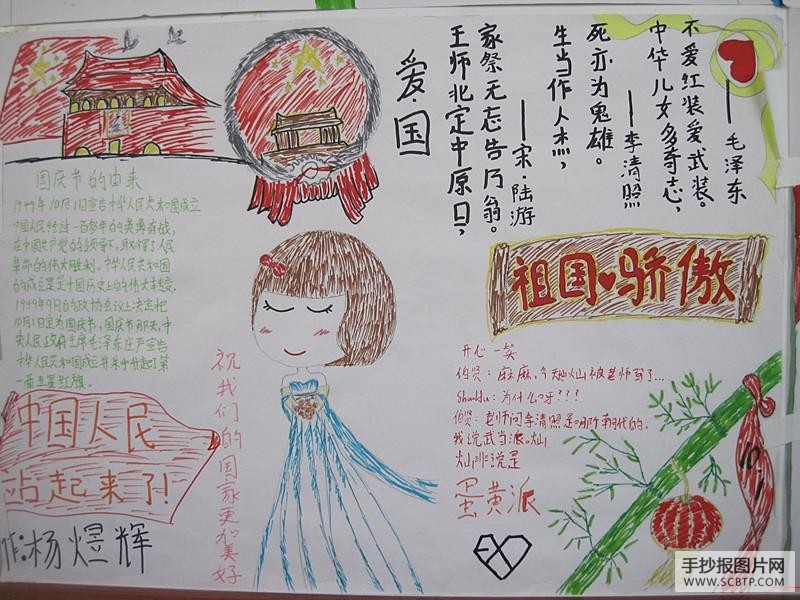 国庆节的由来
1949年10月1日宣告中华人民共和国成立
中国人民经过一百多年的英勇奋战,
在中国共产党的领导下,取得了人民
革命的伟大胜利.中华人民共和国
的成立是中国历史上的伟大转变.
1949年9月的政协会议上决定把
10月1日定为国庆节,国庆节那天,中
央人民政府主席毛泽东庄严宣告
中华人民共和国成立并亲手升起了第
一面五星红旗.
中国人民
站起来了!
作:杨煜辉
祝我们的国家更加美好
爱·国
王师北定中原日,
家祭无忘告乃翁。
——宋·陆游
生当作人杰,
死亦为鬼雄。
——李清照
中华儿女多奇志,
不爱红装爱武装。
——毛泽东
祖国♥骄傲
开心一笑
伯贤:麻麻,今天灿灿被老师骂了...
为什么呀???
伯贤:老师问李清照是哪个朝代的.
我说武当派。灿
灿非说是
蛋黄派
EXO
10.1
手抄报图片网
WWW.SCBTP.COM